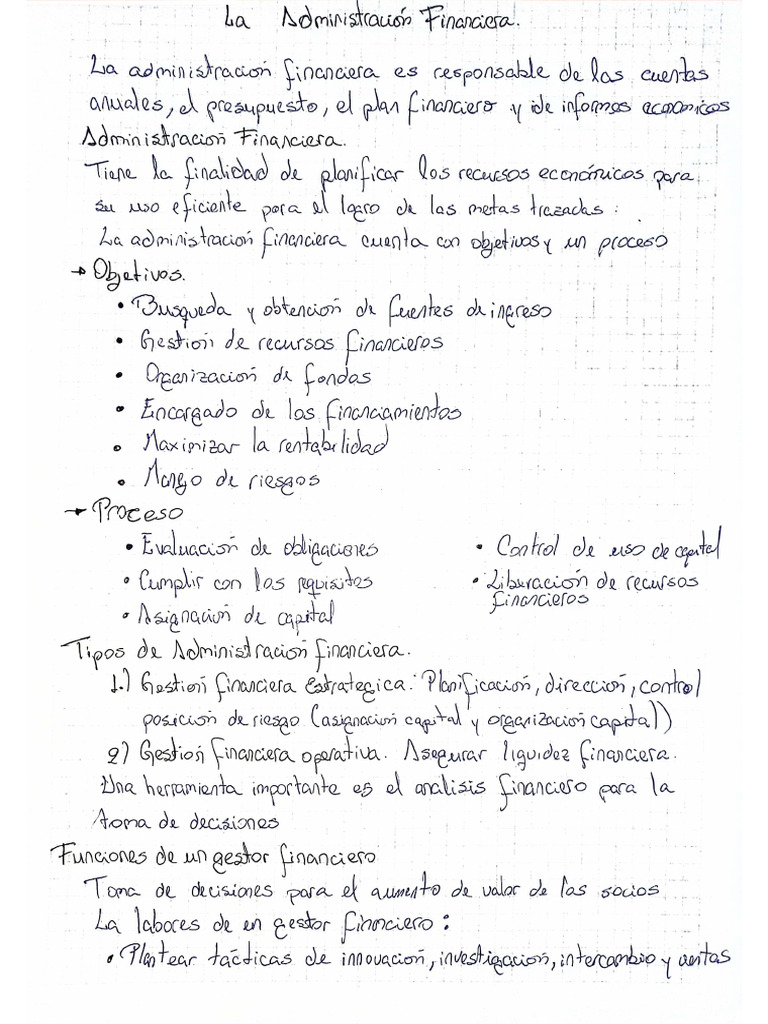 La Administración Financiera.
La administración financiera es responsable de las cuentas
anuales, el presupuesto, el plan financiero y de informes económicos
Administración Financiera.
Tiene la finalidad de planificar los recursos económicos para
su uso eficiente para el logro de las metas trazadas:
La administración financiera cuenta con objetivos y un proceso
→ Objetivos.
• Busqueda y obtención de fuentes de ingreso
• Gestión de recursos financieros
• Organización de fondos
• Encargado de los financiamientos
• Maximizar la rentabilidad
• Manejo de riesgos
→ Proceso
• Evaluación de obligaciones
• Cumplir con los requisitos
• Asignación de capital
• Control de uso de capital
• Liberación de recursos
financieros
Tipos de Administración financiera.
1.) Gestión financiera Estrategica: Planificación, dirección, control
posición de riesgo (asignación capital y organización capital))
2) Gestión financiera operativa. Asegurar liquidez financiera.
Una herramienta importante es el análisis financiero para la
toma de decisiones
Funciones de un gestor financiero
Toma de decisiones para el aumento de valor de los socios
La labores de en gestor financiero:
• Plantear tácticas de innovación, investigación, intercambio y ventas